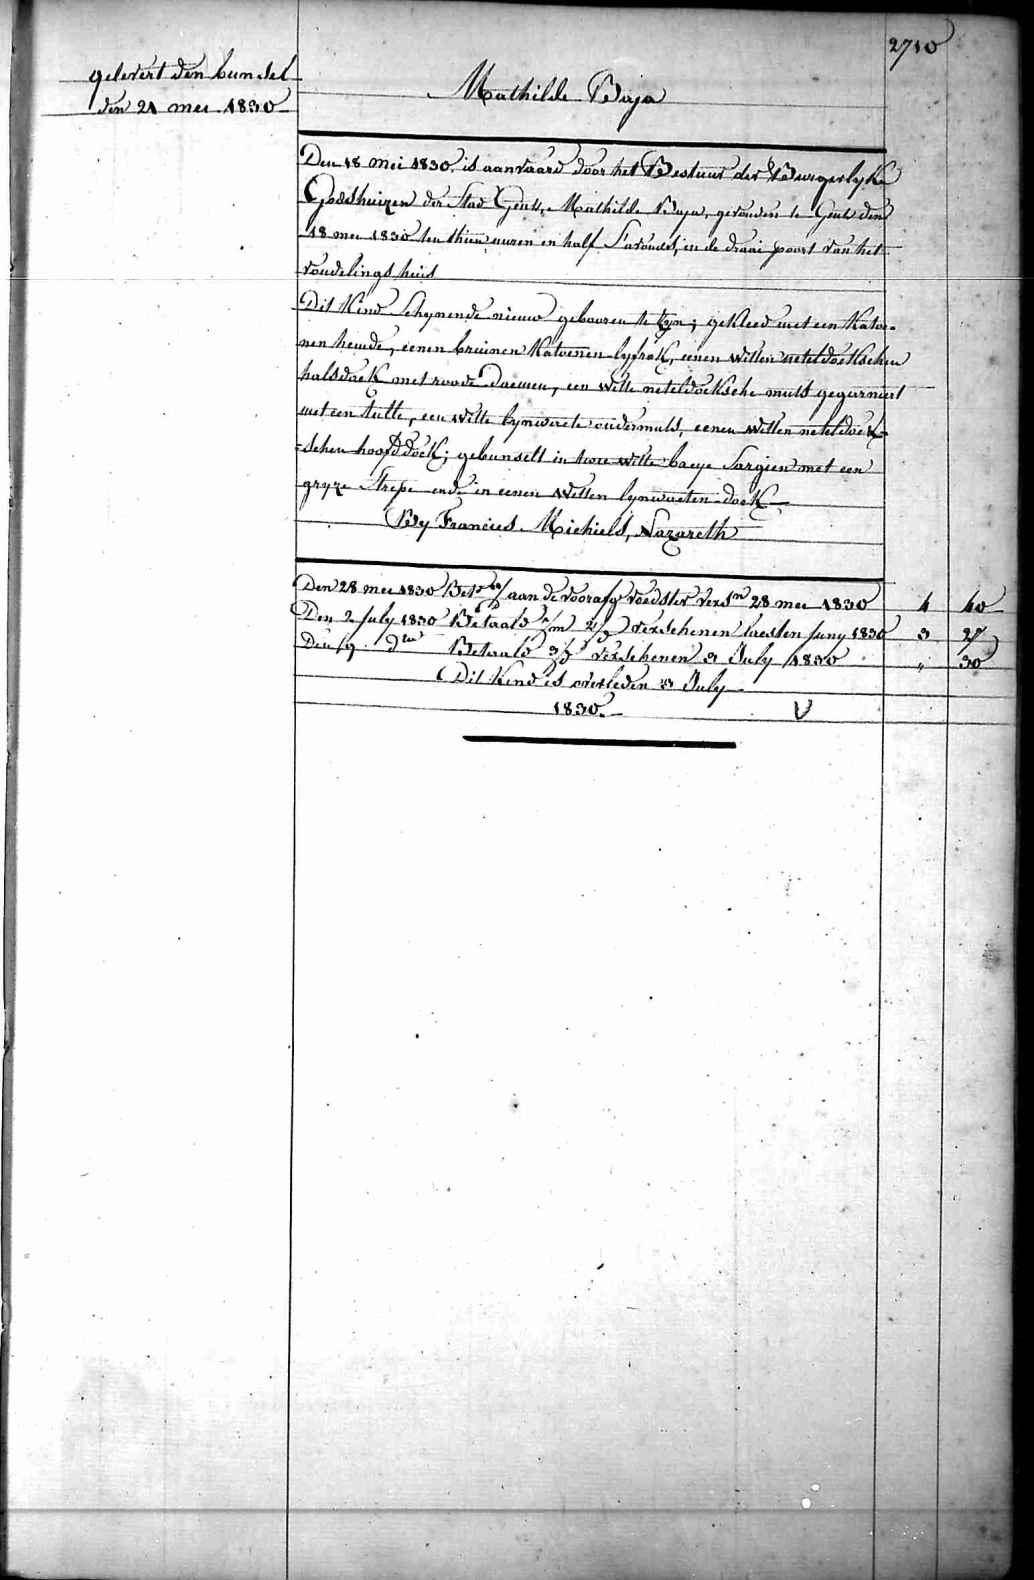 2710
gelevert den bundel
den 21 mei 1830
Mathilde Baja
Den 18 mei 1830 is aanvaard door het Bestuur der Burgerlyke
Godshuizen der Stad Gent, Mathilde Baja, gevonden te Gent den
18 mei 1830 ten thien uuren en half s'avonds, in de draai poort van het
vondelings huis
Dit Kind schynende nieuw gebooren te zyn; gekleed met een Katoe-
nen hemde, eenen bruinen Katoenen lyfrok, eenen witten neteldoekschen
halsdoek met roode , een witte neteldoeksche muts gegarniert
met een tutte, een witte lynwaete ondermuts, eenen witten neteldoek-
schen hoofddoek; gebunselt in twee witte baeye Sargien met een
gryze Strepe ende in eenen witten lynwaeten doek
By Francies Michiels, Nazareth
Den 28 mei 1830 aan de voedster 28 mei 1830 4 40
Den 2 July 1830 Betaald verschenen laesten Juny 1830 3 27
Den 9 dto Betaald verschenen 3 July 1830 " 30
Dit Kind is overleden 3 July
1830.
V